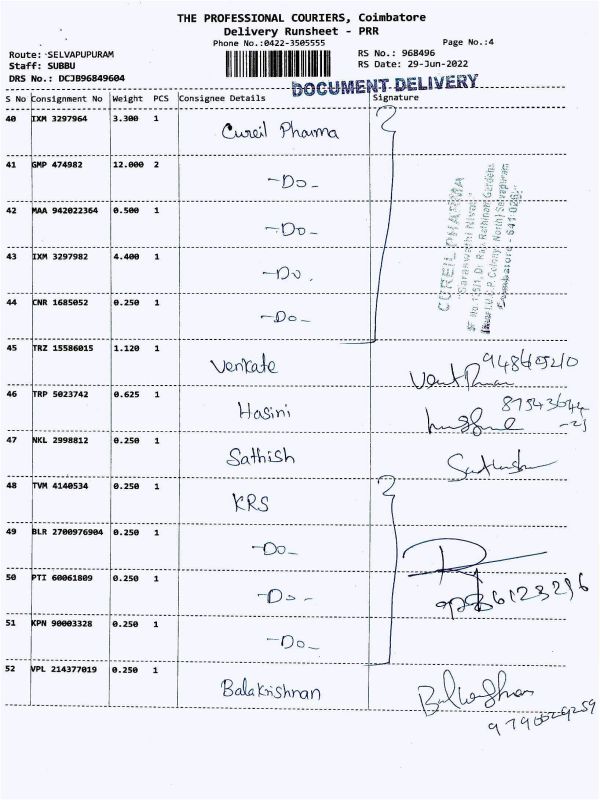 THE PROFESSIONAL COURIERS, Coimbatore
Delivery Runsheet - PRR
Phone No.:0422-3505555 Page No.:4
Route: SELVAPUPURAM RS No.: 968496
Staff: SUBBU RS Date: 29-Jun-2022
DRS No.: DCJB96849604
DOCUMENT DELIVERY
S No Consignment No Weight PCS Consignee Details Signature
40 IXM 3297964 3.300 1 Cureil Pharma
41 GMP 474982 12.000 2 -Do-
42 MAA 942022364 0.500 1 -Do-
43 IXM 3297982 4.400 1 -Do.
44 CNR 1685052 0.250 1 -Do-
CUREIL PHARMA
"Saraswathi Nivas"
Coimbatore - 641 026.
45 TRZ 15586015 1.120 1 Venkate
46 TRP 5023742 0.625 1 Hasini
47 NKL 2998812 0.250 1 Sathish
48 TVM 4140534 0.250 1 KRS
49 BLR 2700976904 0.250 1 -Do-
50 PTI 60061809 0.250 1 -Do-
51 KPN 90003328 0.250 1 -Do-
52 VPL 214377019 0.250 1 Balakrishnan